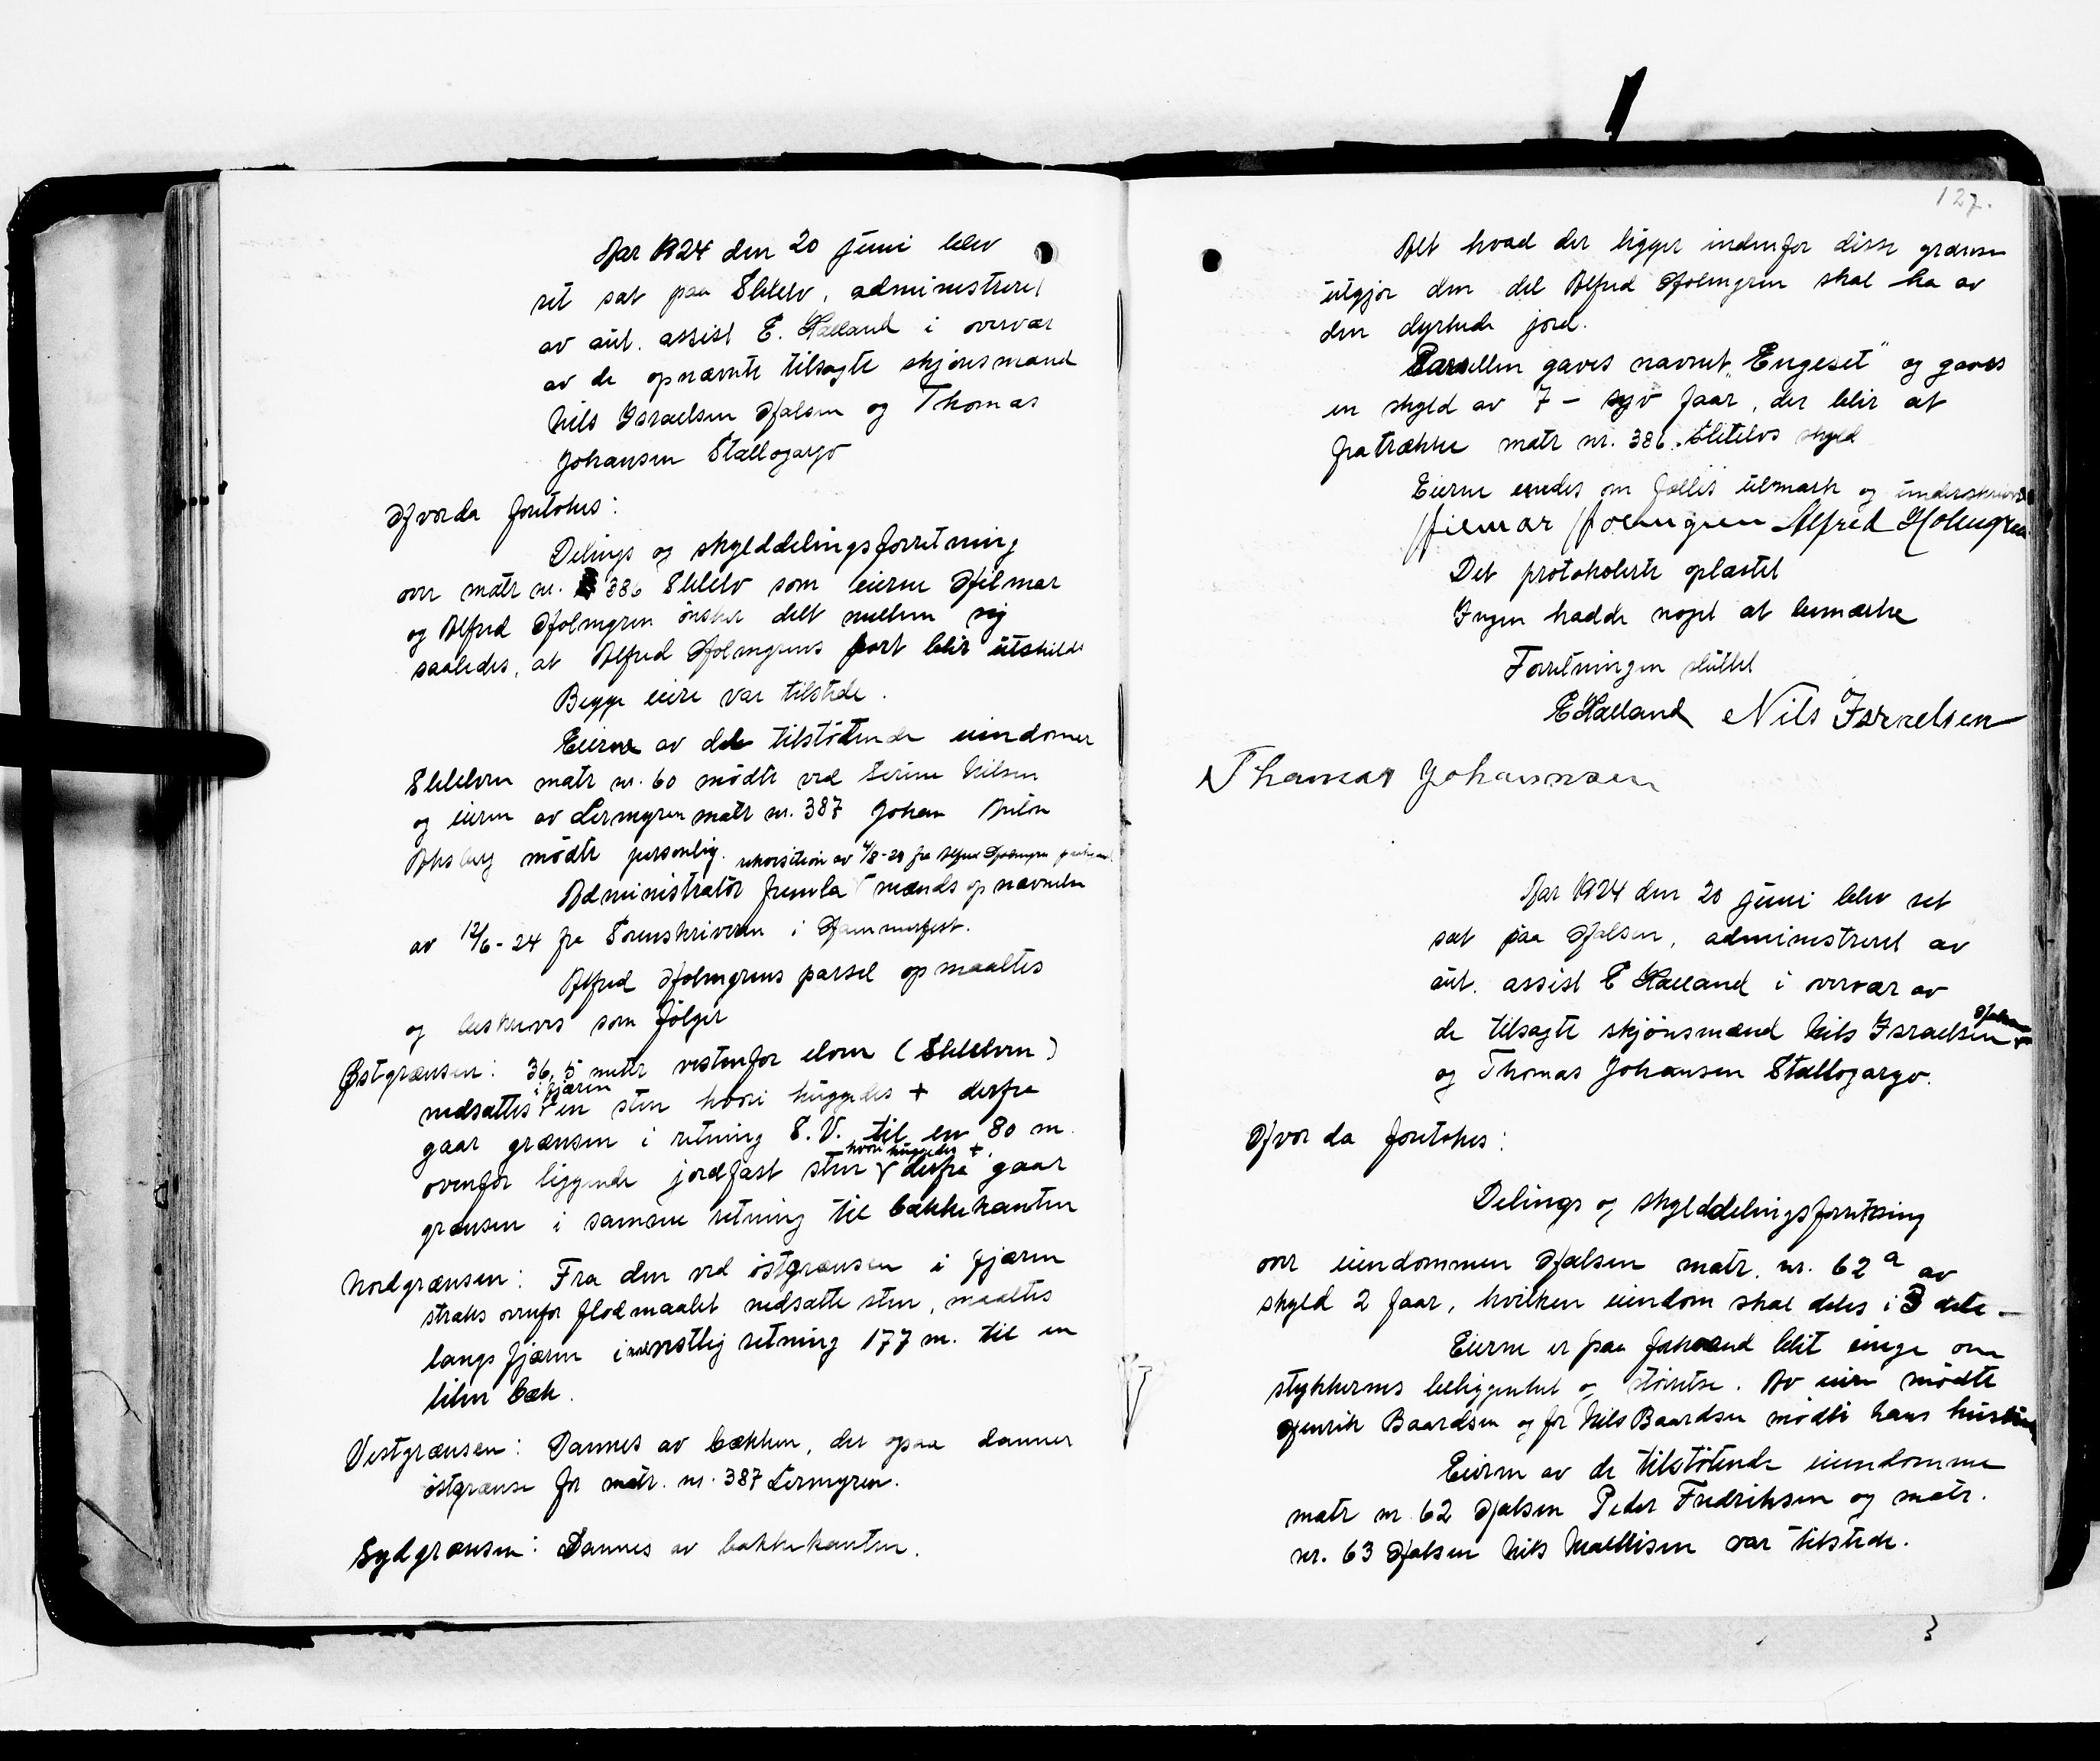 Aar 1924 den 20 juni blev
ret sat paa Slelelv, administreret
av aut. assist E. Hælland i overvær
av de opnævnte tilsagte skjønsmænd
Nils Israelsen Hjalsen og Thomas
Johansen Stallogargo
Hvorda foretokes:
Delings og skylddelingsforretning
over matr nr. 386 Slelelv som eierne Hilmar
og Alfred Holmgren ønsker delt mellem sig
saaledes, at Alfred Holmgrens part blir utskildt
Begge eiere var tilstede.
Eierne av de tilstøtende eiendomer
Slelelven matr nr. 60 mødte ved Serine Nilsen
og eieren av Lermyren matr nr. 387 Johan
mødte personlig. rekvisition av 4/8-23 fra Alfred Holmgren
Administrator fremla mænds opnævnelse
av 12/6-24 fra Sorenskriveren i Hammerfest.
Alfred Holmgrens parsel opmaaltes
og beskrives som følger
Østgrænsen: 36,5 meter vestenfor elven (Slelelven)
nedsattes i fjæren en sten hvori huggedes + derfra
gaar grænsen i retning S.V. til en 80 m.
ovenfor liggende jordfast sten hvori huggedes +. derfra gaar
grænsen i samme retning til bakkekanten
Nordgrænsen: Fra den ved østgrænsen i fjæren
straks ovenfor flodmaalet nedsatte sten, maaltes
langs fjæren i vestlig retning 177 m. til en
liten bæk.
Vestgrænsen: Dannes av bækken, der ogsaa danner
østgrænse for matr. nr. 387 Lermyren.
Sydgrænsen: Dannes av bakkekanten.
127.
Alt hvad der ligger indenfor disse grænser
utgjør den del Alfred Holmgren skal ha av
den dyrkede jord.
Parsellen gaves navnet "Engeset" og gaves
en skyld av 7 - syv faar, der blir at
fratrække matr nr. 386. Slelelvs skyld
Eierne enedes om fælles utmark og underskriver
Hilmar Holmgren Alfred Holmgren
Det protokolerte oplæstet
Ingen hadde noget at bemærke
Forretningen sluttet
E Hælland Nils Israelsen
Thomas Johannsen
Aar 1924 den 20 juni blev ret
sat paa Hjalsen, administreret av
aut. assist E Hælland i overvær av
de tilsagte skjønsmænd Nils Israelsen Hjalsen
og Thomas Johansen Stallogargo.
Hvor da foretokes:
Delings og skylddelingsforretning
over eiendommen Hjalsen matr. nr. 62 a av
skyld 2 faar, hvilken eiendom skal deles i 3 dele -
Eierne er paa forhaand blit enige om
stykkernes beliggenhet og størrelse. Av eiere mødte
Henrik Baardsen og for Nils Baardsen mødte hans hustru
Eierne av de tilstøtende eiendomme
matr nr. 62 Hjalsen Peder Fredriksen og matr.
nr. 63 Hjalsen Nils Mathisen var tilstede.